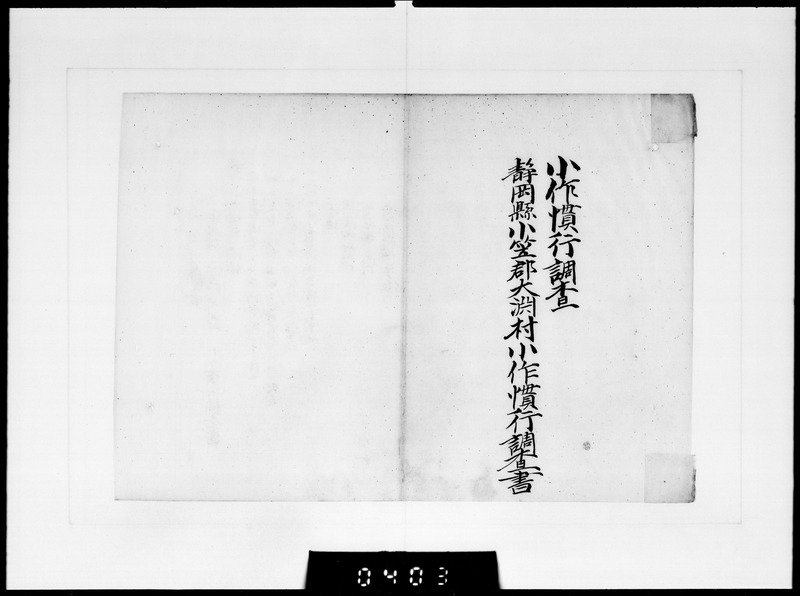 小作慣行調査
静岡縣小笠郡大渕村小作慣行調査書
0403